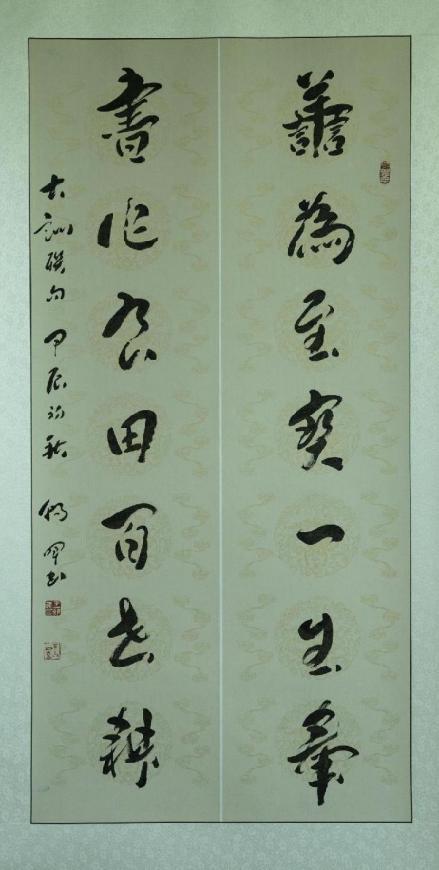 譱為至寶一生
書作良田百世耕
古訓聯句 甲辰初秋 書